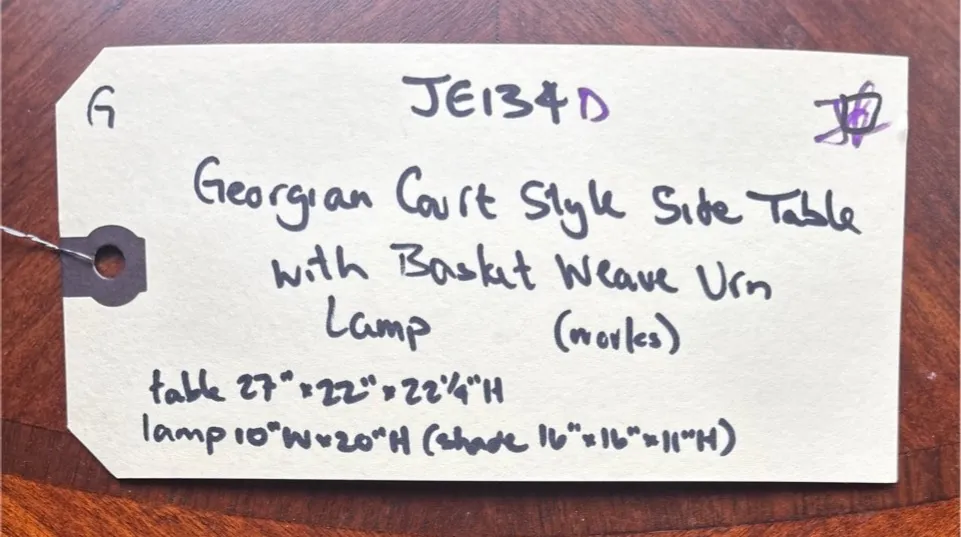 G
JE134D
Georgian Court Style Side Table
with Basket Weave Urn
Lamp (works)
table 27" x 22" x 22¼"H
lamp 10"W x 20"H (shade 16" x 16" x 11"H)